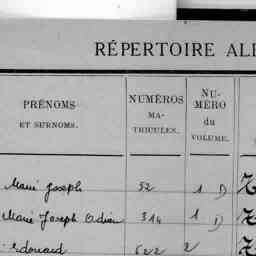 RÉPERTOIRE AL
PRÉNOMS
ET SURNOMS.
NUMÉROS
MA-
TRICULES.
NU-
MÉRO
du
VOLUME.
Marie Joseph 52 1 D
Marie Joseph Odien 314 1 D
Edouard 522 2